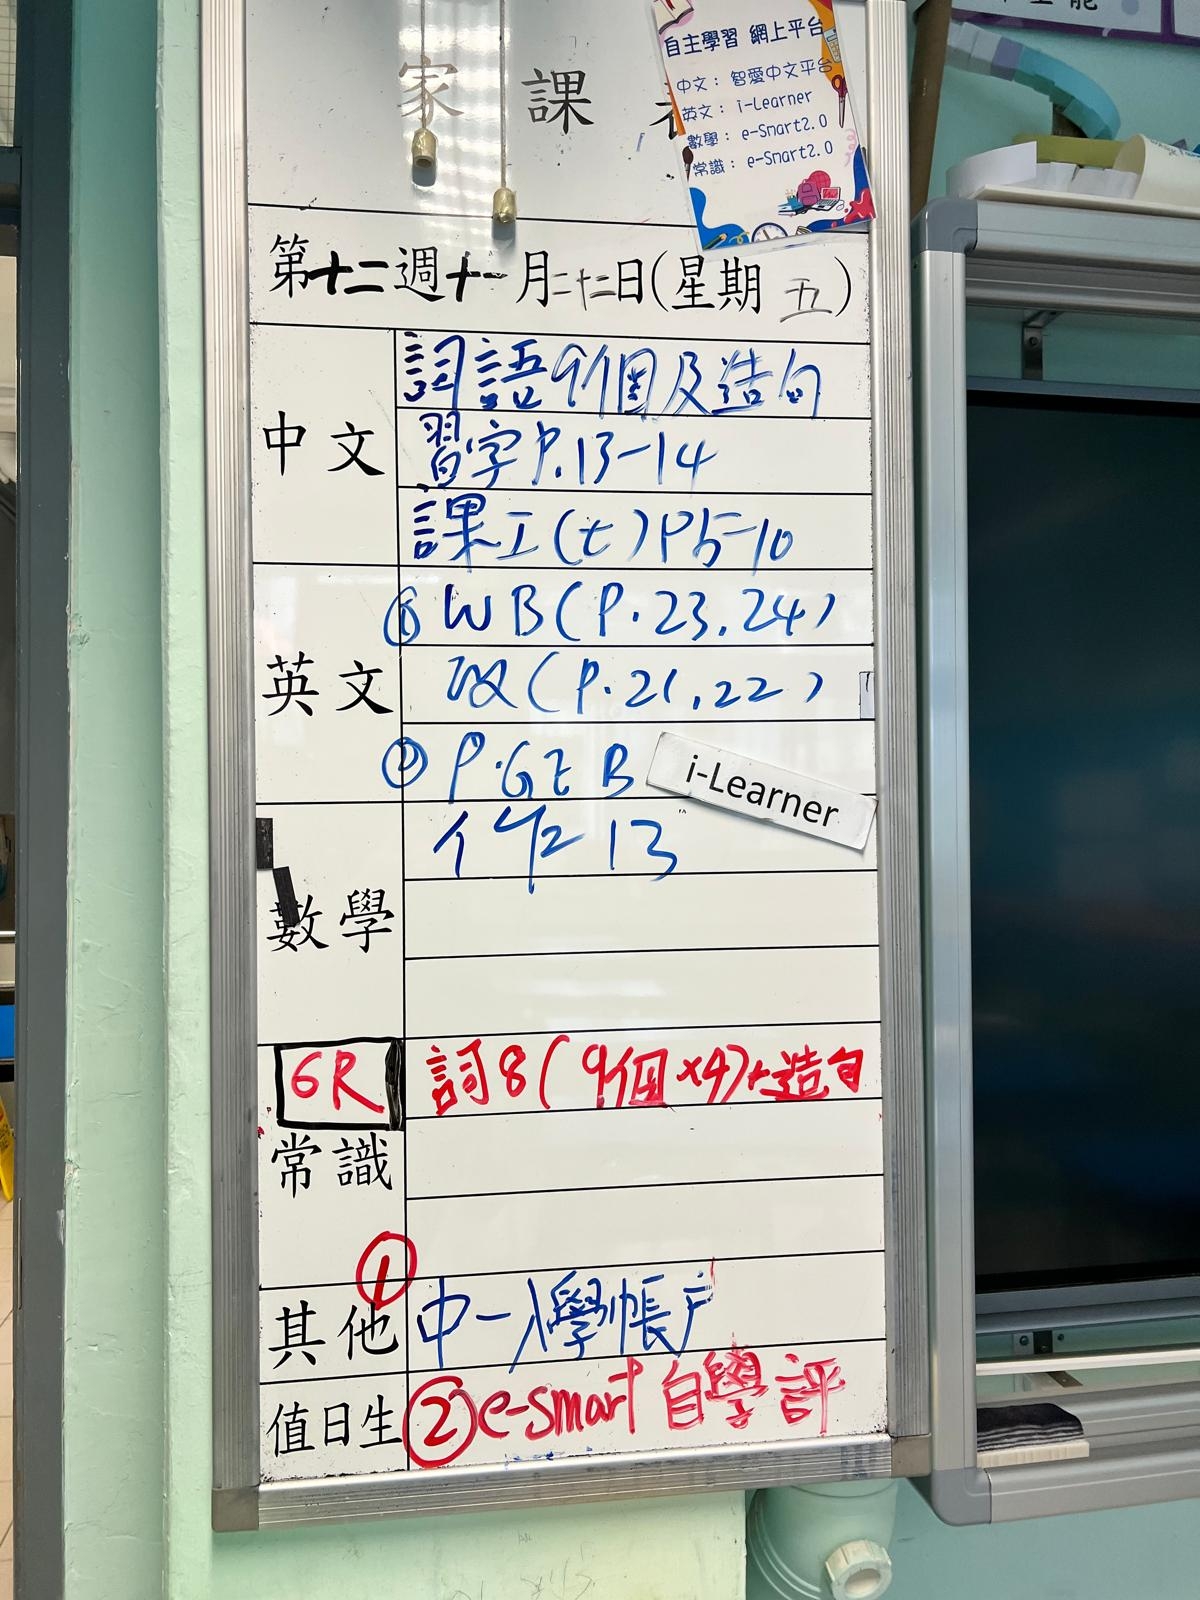 家課
自主學習 網上平台
中文：智愛中文平台
英文：i-Learner
數學：e-Smart2.0
常識：e-Smart2.0
第十二週十一月二十二日(星期五)
中文
詞語9個及造句
習字P.13-14
課工(七)P5-10
英文
① WB(P.23.24)
改(P.21.22)
② P.GE B
i-Learner
數學
作 13
6R
詞8(9個x4)+造句
常識
①
其他
中一入學帳戶
值日生
② e-smart 自學評